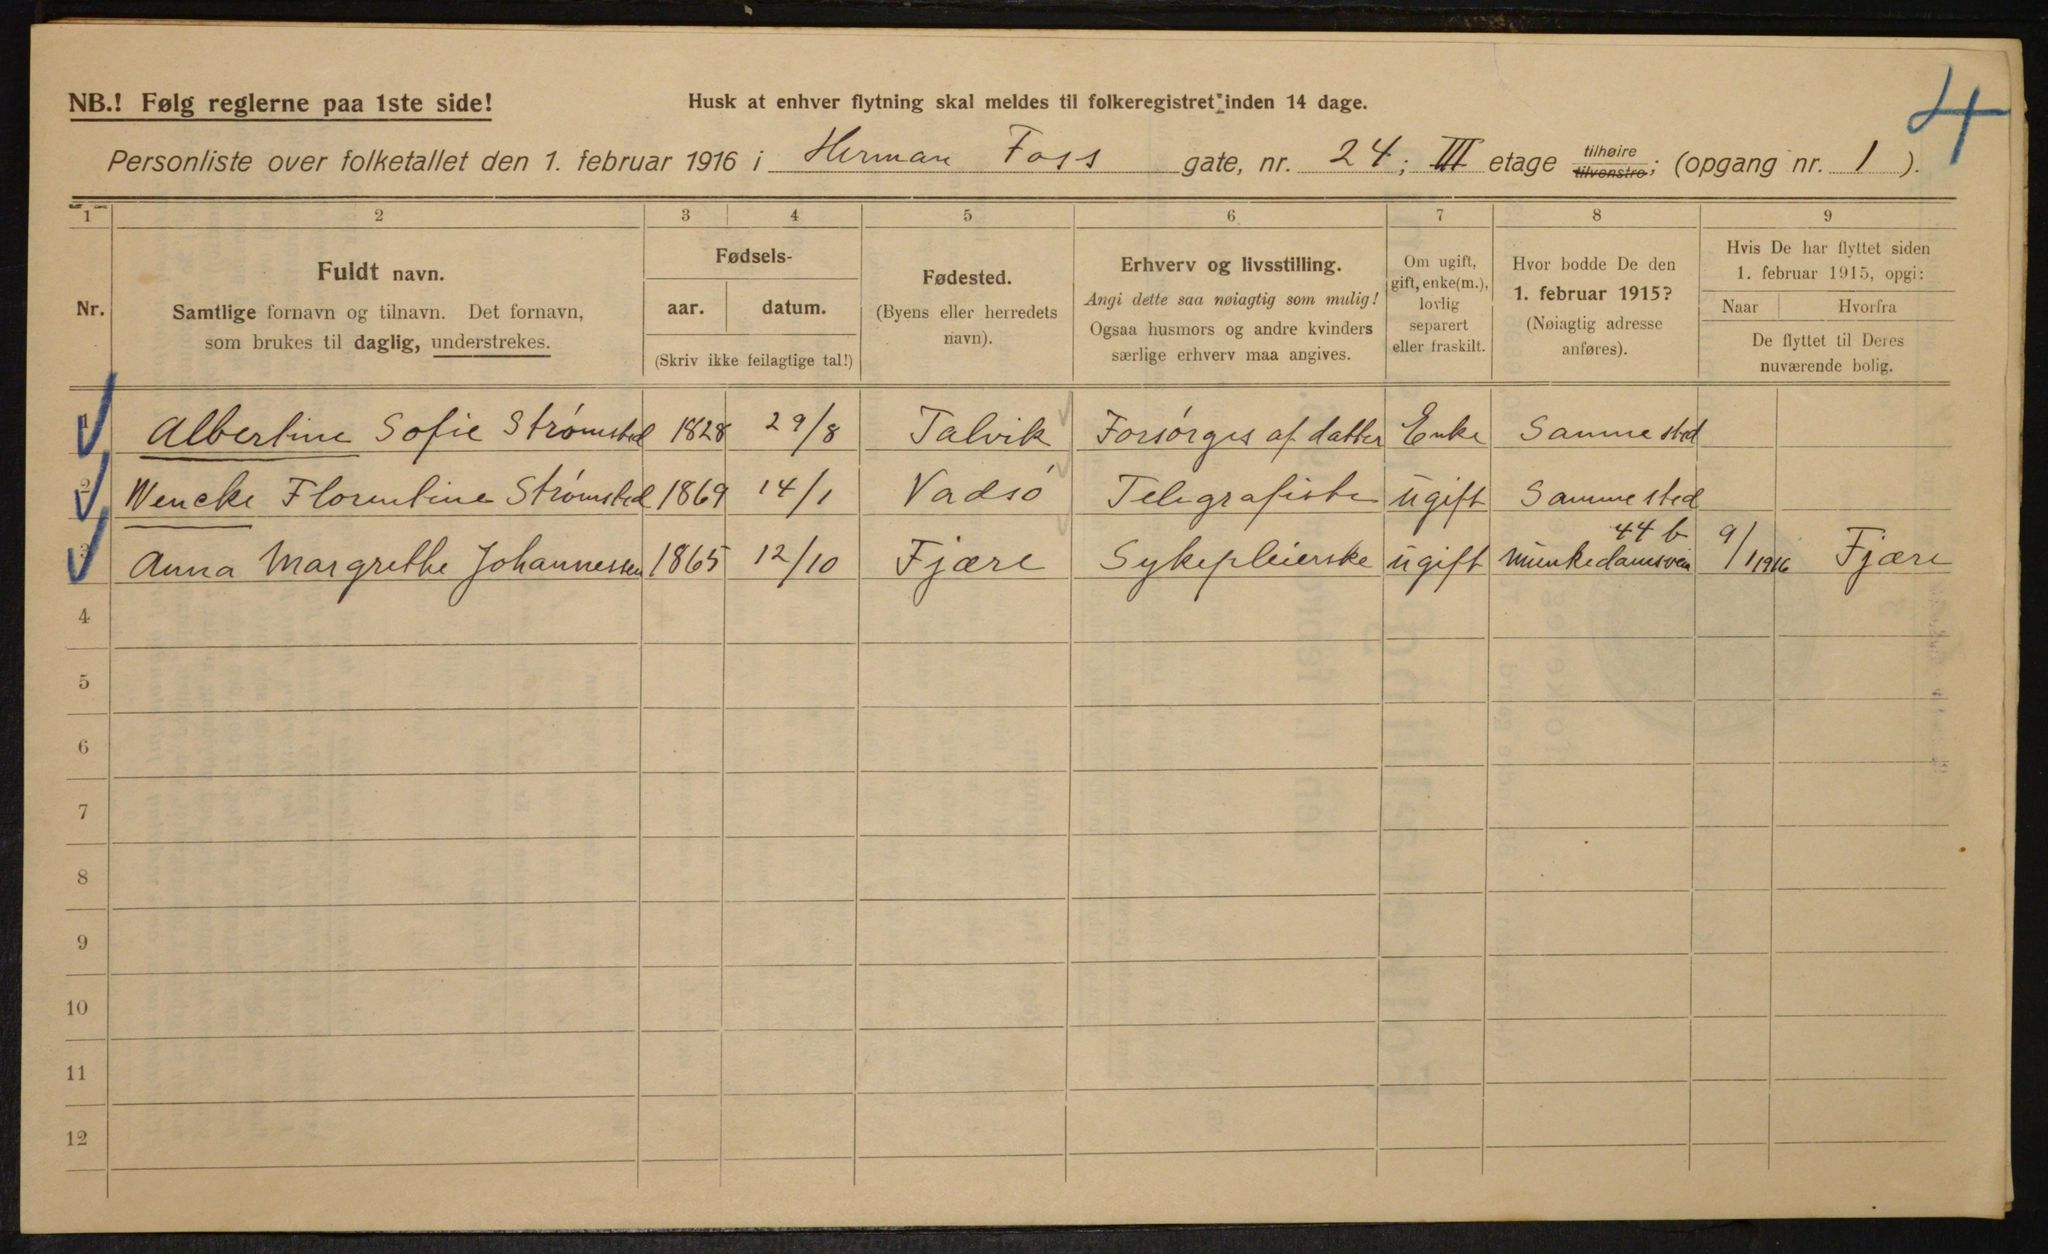 4
NB.! Følg reglerne paa 1ste side!
Husk at enhver flytning skal meldes til folkeregistret inden 14 dage.
Personliste over folketallet den 1. februar 1916 i Herman Foss gate, nr. 24; III etage tilhøire tilvenstre; (opgang nr. 1).
1 2 3 4 5 6 7 8 9
Nr.
Fuldt navn.
Samtlige fornavn og tilnavn. Det fornavn,
som brukes til daglig, understrekes.
Fødsels-
aar. datum.
(Skriv ikke feilagtige tal!)
Fødested.
(Byens eller herredets
navn).
Erhverv og livsstilling.
Angi dette saa nøiagtig som mulig!
Ogsaa husmors og andre kvinders
særlige erhverv maa angives.
Om ugift,
gift, enke(m.),
lovlig
separert
eller fraskilt.
Hvor bodde De den
1. februar 1915?
(Nøiagtig adresse
anføres).
Hvis De har flyttet siden
1. februar 1915, opgi:
Naar Hvorfra
De flyttet til Deres
nuværende bolig.
1 Albertine Sofie Strømsted 1828 29/8 Talvik Forsørges af datter Enke Samme sted
2 Wencke Florentine Strømsted 1869 14/1 Vadsó Telegrafiste ugift Samme sted
3 Anna Margrethe Johannessen 1865 12/10 Fjære Sykepleierske ugift Munkedamsvein 44 b 9/1 1916 Fjære
4
5
6
7
8
9
10
11
12